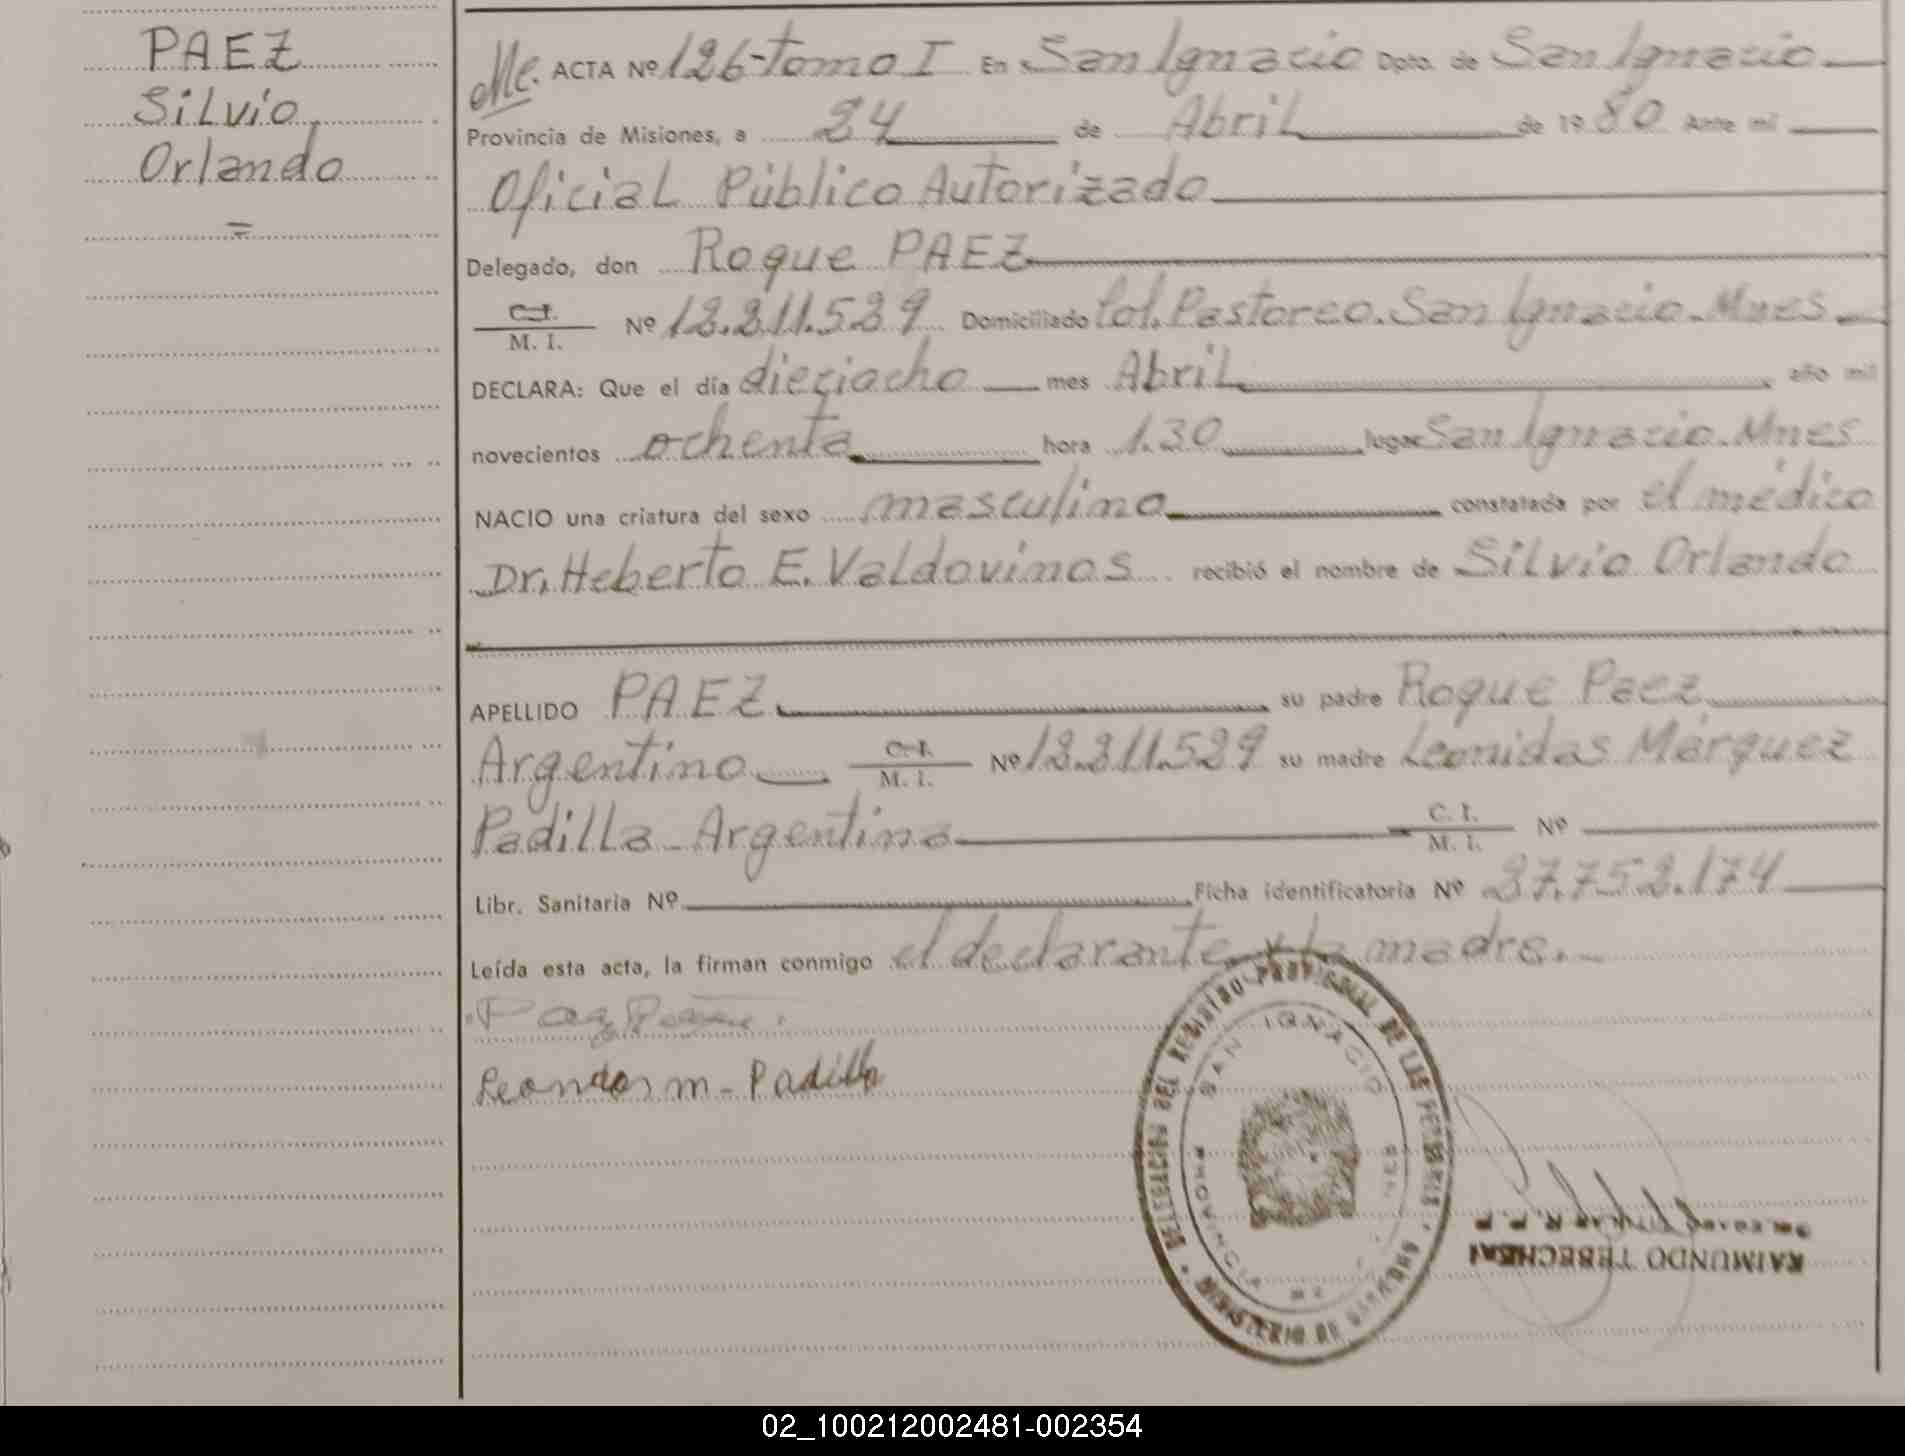 PAEZ
Silvio
Orlando
=
Me. ACTA Nº 126-Tomo I En San Ignacio Dpto. de San Ignacio
Provincia de Misiones, a 24 de Abril de 1980 Ante mi
Oficial Público Autorizado
Delegado, don Roque PAEZ
C.I.
M. I. Nº 12.211.529 Domiciliado Col. Pastoreo. San Ignacio. Mnes
DECLARA: Que el día dieciocho mes Abril año mil
novecientos ochenta hora 1.30 lugar San Ignacio. Mnes
NACIO una criatura del sexo masculino constatada por el médico
Dr. Heberto E. Valdovinos recibió el nombre de Silvio Orlando
APELLIDO PAEZ su padre Roque Paez
Argentino C.I. M. I. Nº 12.211.529 su madre Leonidas Márquez
Padilla Argentina C. I. M. I. Nº
Libr. Sanitaria Nº Ficha identificatoria Nº 27.752.174
Leída esta acta, la firman conmigo el declarante y la madre.
Paez
m - Padilla
REGISTRO PROVINCIAL DE LAS PERSONAS
SAN IGNACIO
PROVINCIA
RAIMUNDO TEBECHERI
TITULAR R. P. P.
02_100212002481-002354